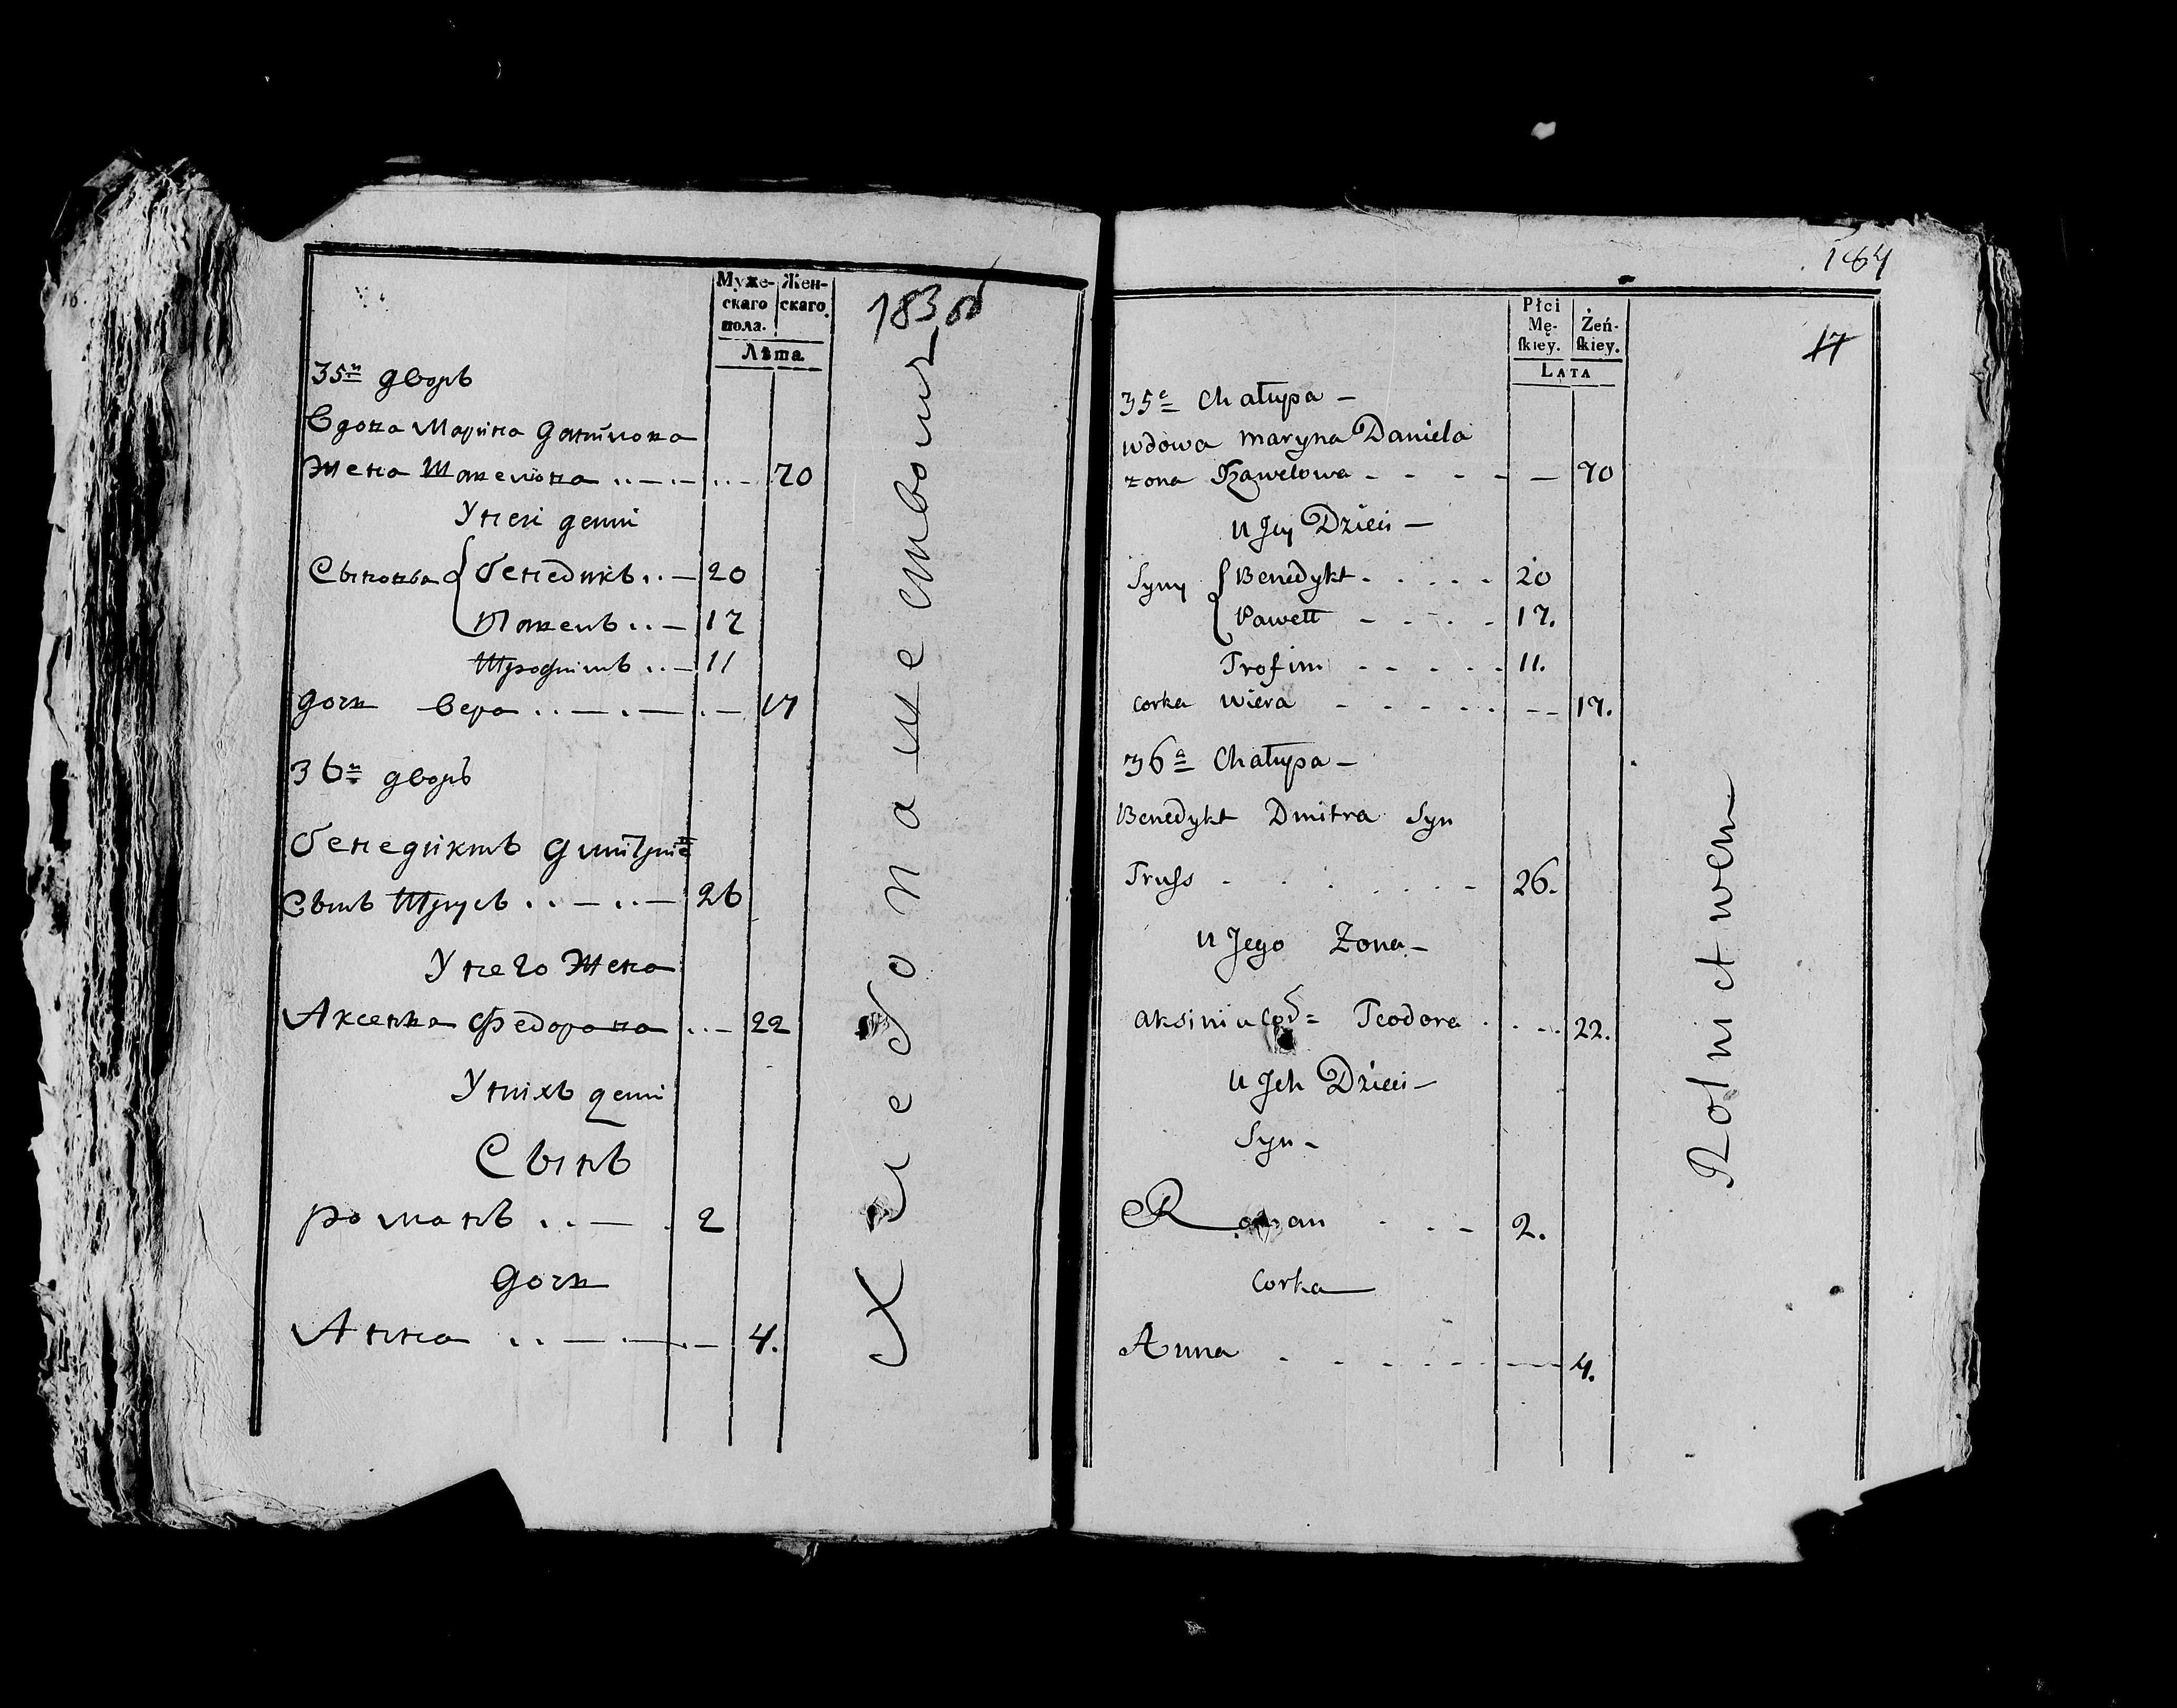 Муже-
скаго
пола.
Жен-
скаго
Лѣта
183 об
35й дворъ
Вдова Марина Данилова
жена Павелова 70
У неи дети
Сыновья Бенедиктъ 20
Павелъ 17
Трофимъ 11
Дочь Вера 17
36й дворъ
Бенедиктъ Дмитрiевъ
Сынъ Трусъ 26
У него жена
Аксеня Федорова 22
У нихъ дети
Сынъ
Романъ 2
Дочь
Анна 4.
Хлебопашествомъ
184
17
Płci
Mę-
ſkiey.
Żeń-
ſkiey.
LATA
35a Chałupa
wdowa maryna Daniela
zona Pawelowa 70
u Jey Dzieci
Syny Benedykt 20
Pawełł 17.
Trofim 11.
corka Wiera 17.
36a Chałupa
Benedykt Dmitra Syn
Truſs 26.
u Jego Zona
Aksinia Teodora 22.
u Jch Dzieci
Syn
Roman 2.
Corka
Anna 4.
Rolnictwem